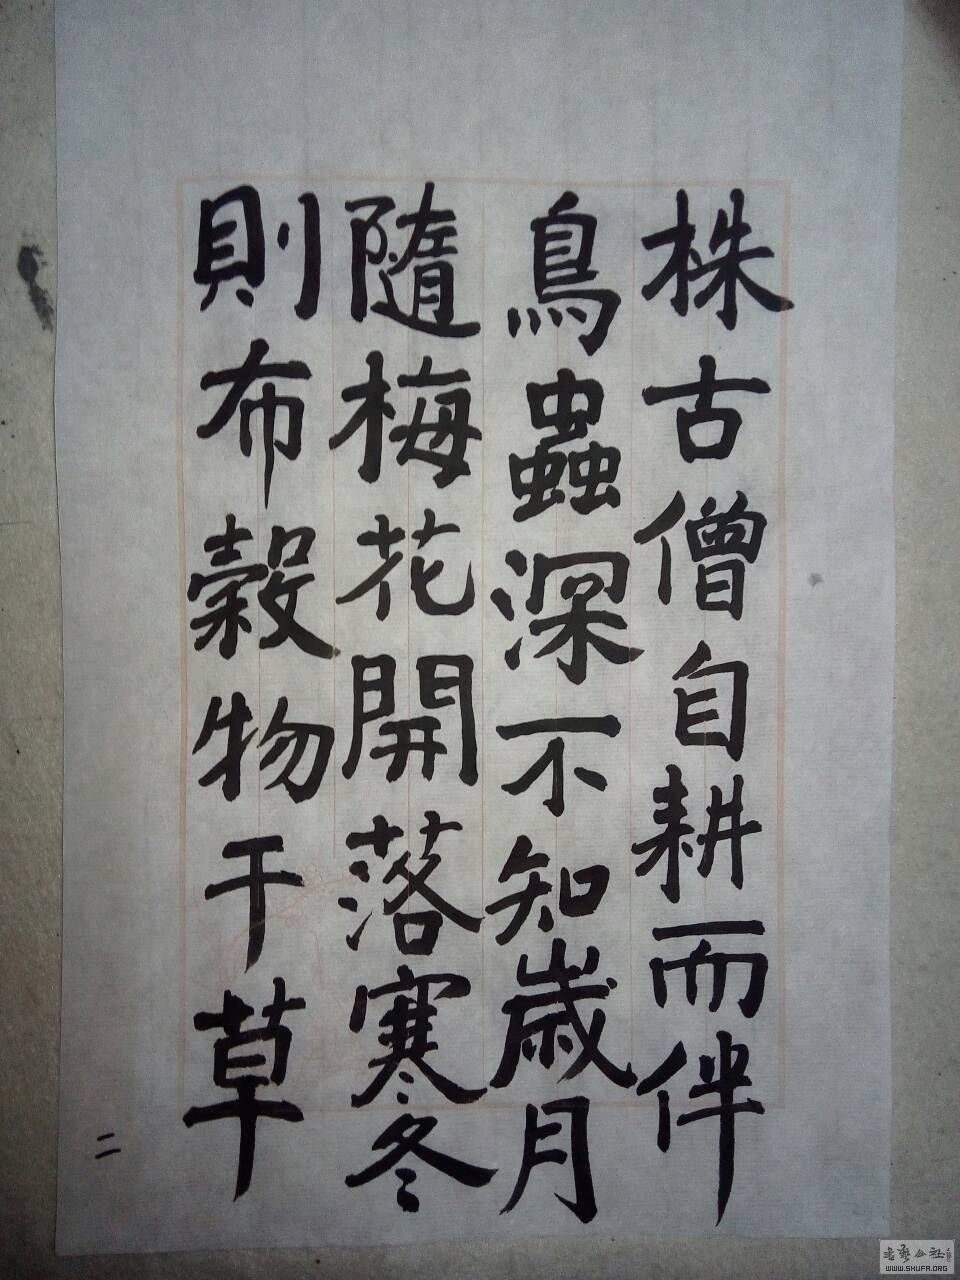 株古僧自耕而伴
鳥蟲深不知歲月
隨梅花開落寒冬
則布穀物于草
二
WWW.SHUFA.ORG